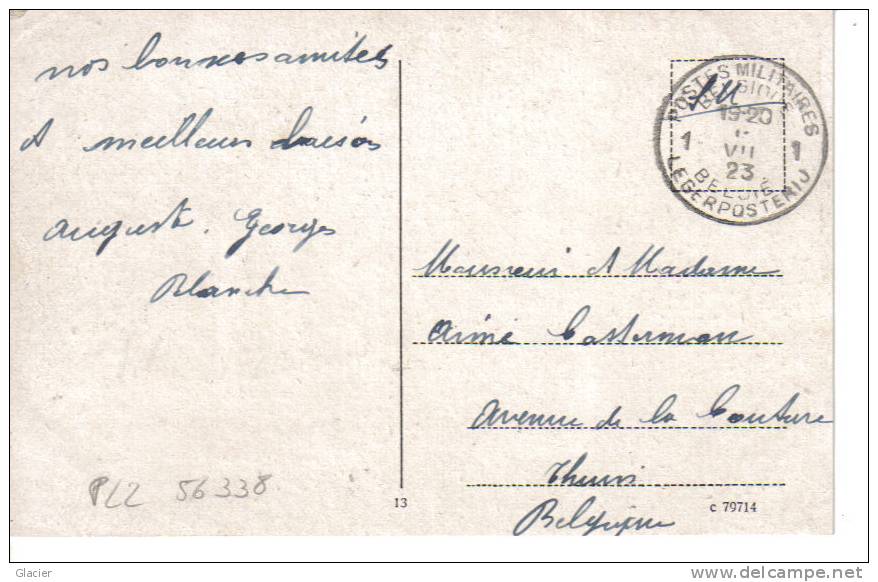 nos bonnes amitiés
et meilleurs baisers
Auguste. Georges
Blanche
SM
POSTES MILITAIRES
BELGIQUE
19-20
VII
23
1 1
BELGIË
LEGERPOSTERIJ
Monsieur et Madame
Aimé Casterman
Avenue de la Couture
Belgique
PL2 56338
13
c 79714
Glacier
www.delcampe.net